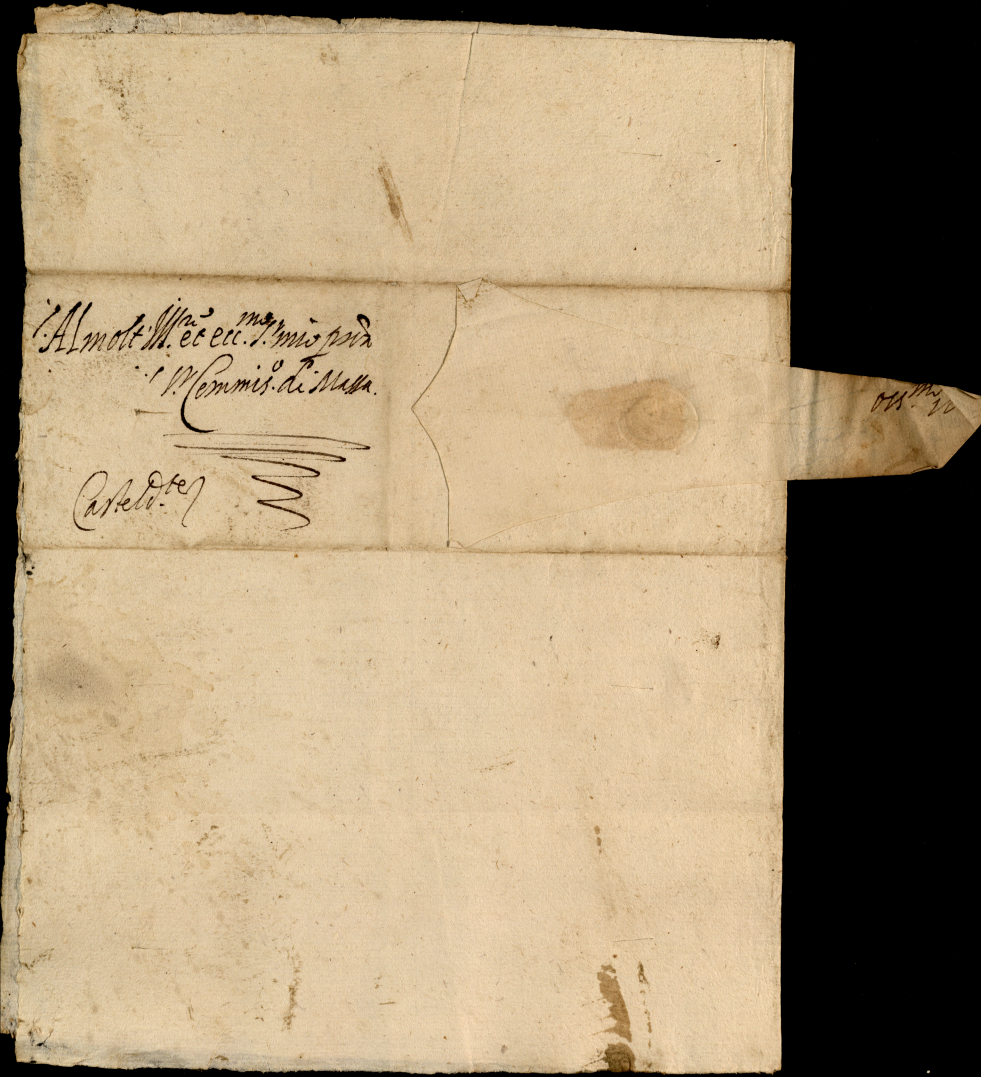 Al molt Ill.re et ecc.mo S.r mio
Il S.r Commis.o di Massa.
Casteld.te